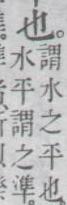 也。
謂水之平也
水平謂之準。